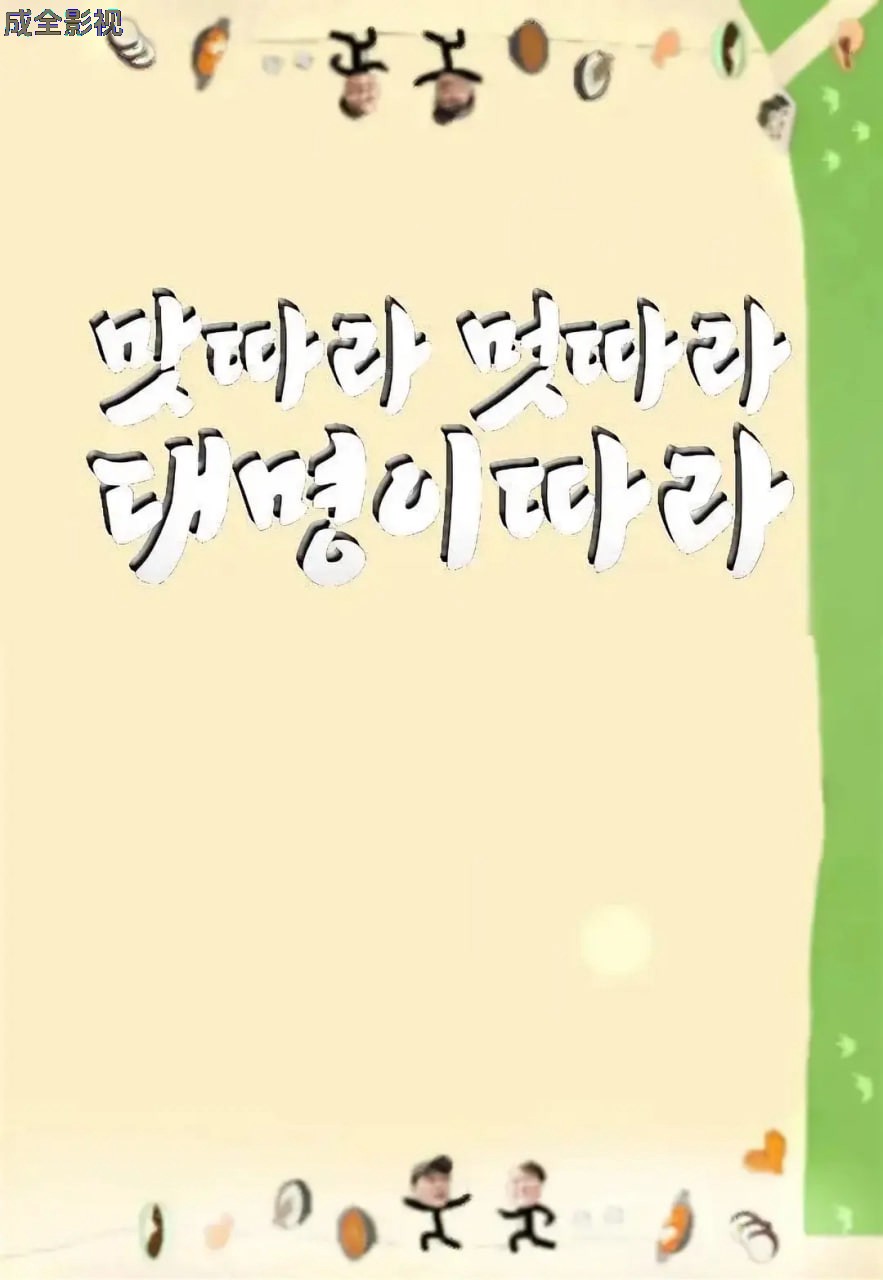 成全影视
맛따라 멋따라
대명이따라